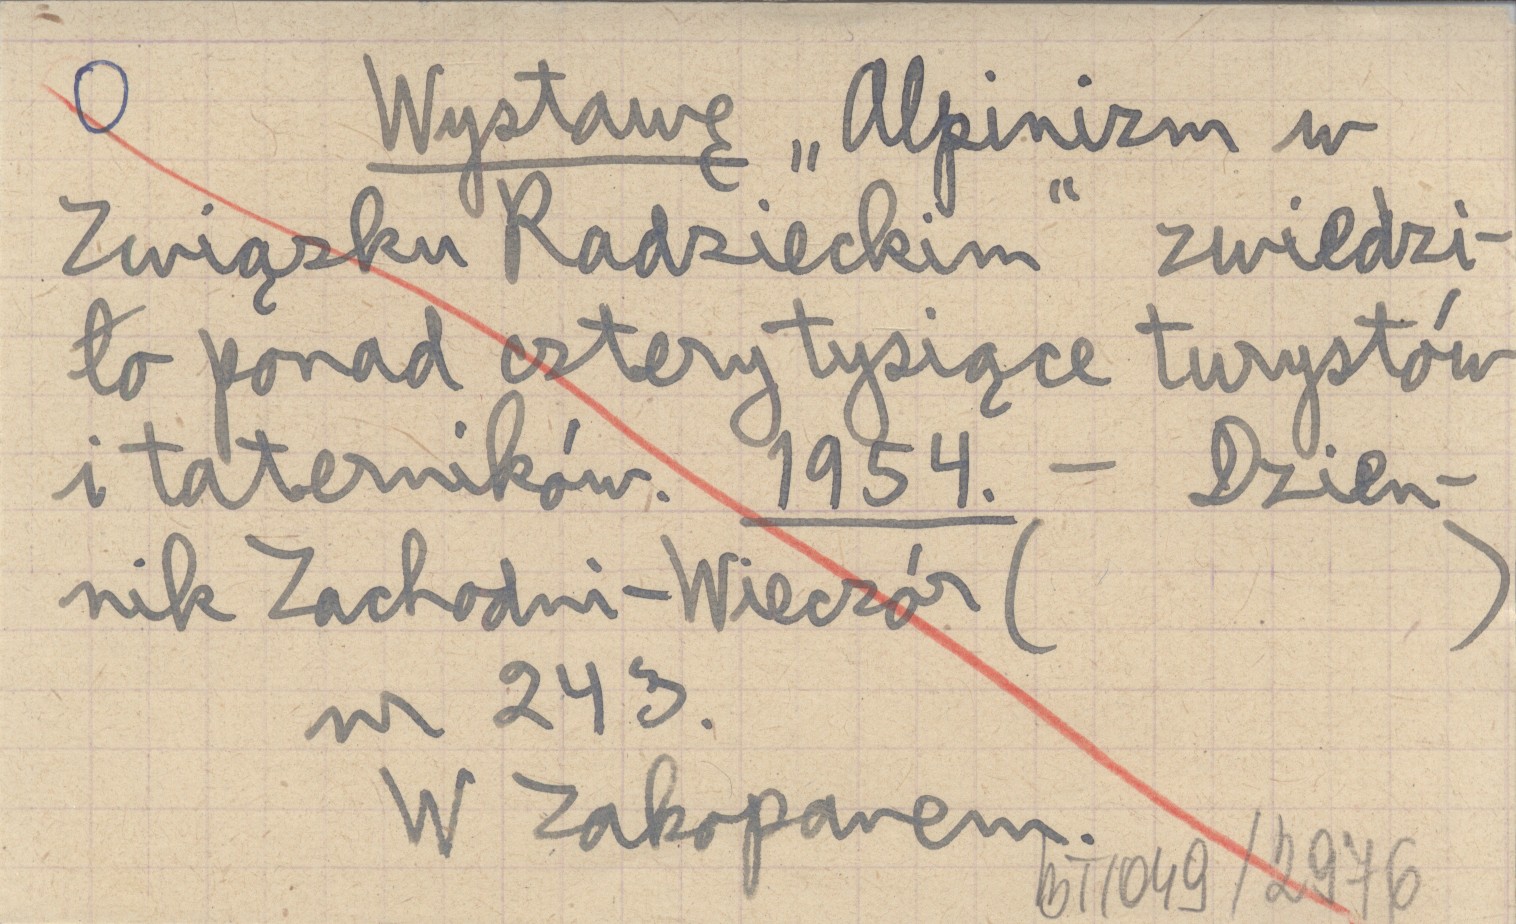 O Wystawę „Alpinizm w
Związku Radzieckim“ zwiedzi-
ło ponad cztery tysiące turystów
i taterników. 1954. – Dzien-
nik Zachodni-Wieczór ( )
nr 243.
W Zakopanem.
/2976